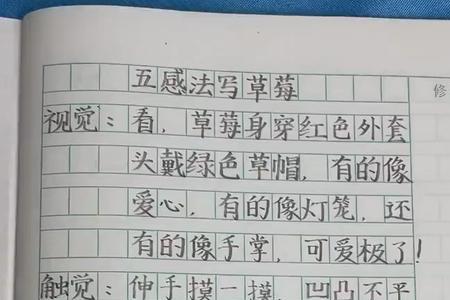 五感法写草莓
修
视觉：看，草莓身穿红色外套
头戴绿色草帽，有的像
爱心，有的像灯笼，还
有的像手掌，可爱极了！
触觉：伸手摸一摸，凹凸不平